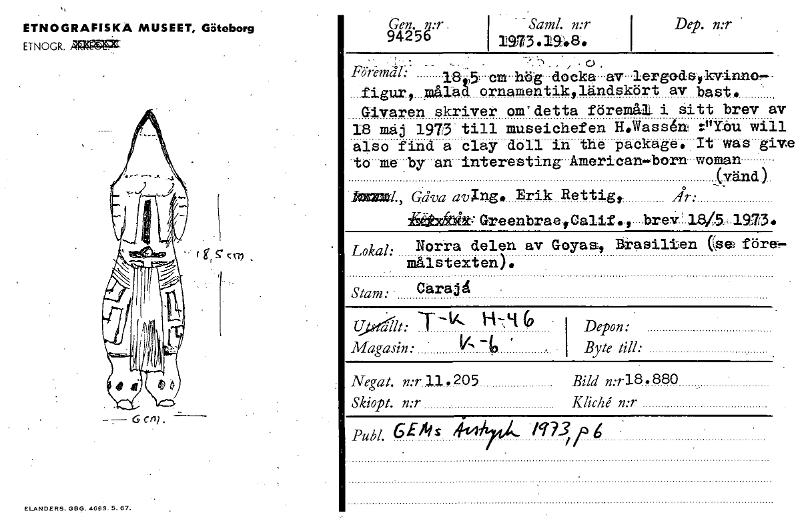 ETNOGRAFISKA MUSEET, Göteborg
ETNOGR.
Gen. n:r
94256
Saml. n:r
1973.19.8.
Dep. n:r
Föremål: 18,5 cm hög docka av lergods,kvinno-
figur, målad ornamentik,ländskört av bast.
Givaren skriver om detta föremål i sitt brev av
18 maj 1973 till museichefen H.Wassén :"You will
also find a clay doll in the package. It was give
to me by an interesting American-born woman
(vänd)
Gåva av Ing. Erik Rettig, År:
Greenbrae,Calif., brev 18/5 1973.
Lokal: Norra delen av Goyas, Brasilien (se före-
målstexten).
Stam: Carajá
Utställt: T-K H-46
Depon:
Magasin: K-6
Byte till:
Negat. n:r 11.205
Bild n:r 18.880
Skiopt. n:r
Kliché n:r
Publ. GEMs Årstryck 1973, p 6
18,5 cm.
6 cm.
ELANDERS. GBG. 4063. 5. 67.